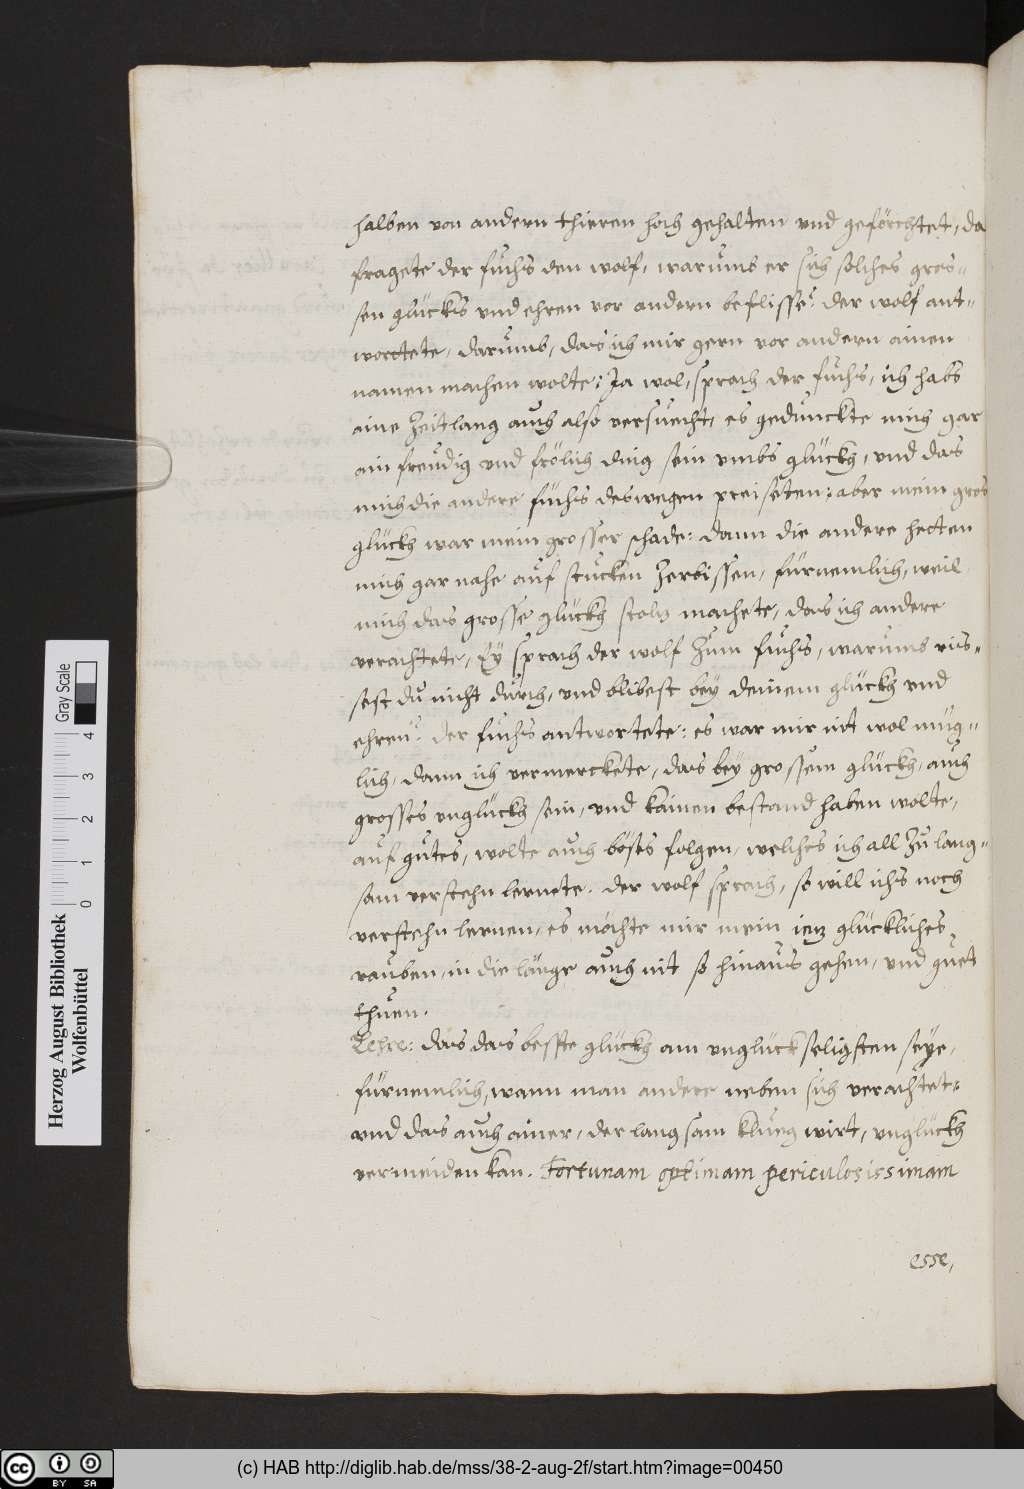 halben von andern thieren hoch gehalten vnd geförchtet, da
fragete der fuchs den wolf, warumb er sich solches gros-
sen glücks vnd ehren vor andern beflisse? der wolf ant-
wortete, darumb, das ich mir gern vor andern ainen
namen machen wolte: Ja wol, sprach der fuchs, ich habs
aine Zeitlang auch also versuecht, es gedunckte mich gar
ain freudig vnd frölich ding sein vmbs glückh, vnd das
mich die andere füchs deswegen preiseten: aber mein gros
glückh war mein grosser schade: dann die andere hetten
mich gar nahe auf stucken Zerbissen, fürnemlich, weil
mich das grosse glückh stolz machete, das ich andere
verachtete, Ey sprach der wolf Zum fuchs, warumb ris-
sest du nicht durch, vnd blibest bey deinem glückh vnd
ehren? der fuchs antwortete: es war mir nit wol müg-
lich, dann ich vermerckete, das bey grossem glückh, auch
grosses vnglückh sein, vnd kainen bestand haben wolte,
auf gutes, wolte auch böses folgen, welches ich all Zu lang-
sam verstehn lernete. der wolf sprach, so will ichs noch
verstehn lernen, es möchte mir mein iez glückliches
rauben, in die länge auch nit so hinaus gehen, vnd guet
thuen.
Lehre: das das beste glückh am vnglückseligsten seye,
fürnemlich, wann man andere neben sich verachtet,
vnd das auch ainer, der langsam klueg wirt, vnglückh
vermeiden kan. Fortunam optimam periculosissimam
esse,
Herzog August Bibliothek
Wolfenbüttel
Gray Scale
0 1 2 3 4
cc BY SA
(c) HAB http://diglib.hab.de/mss/38-2-aug-2f/start.htm?image=00450